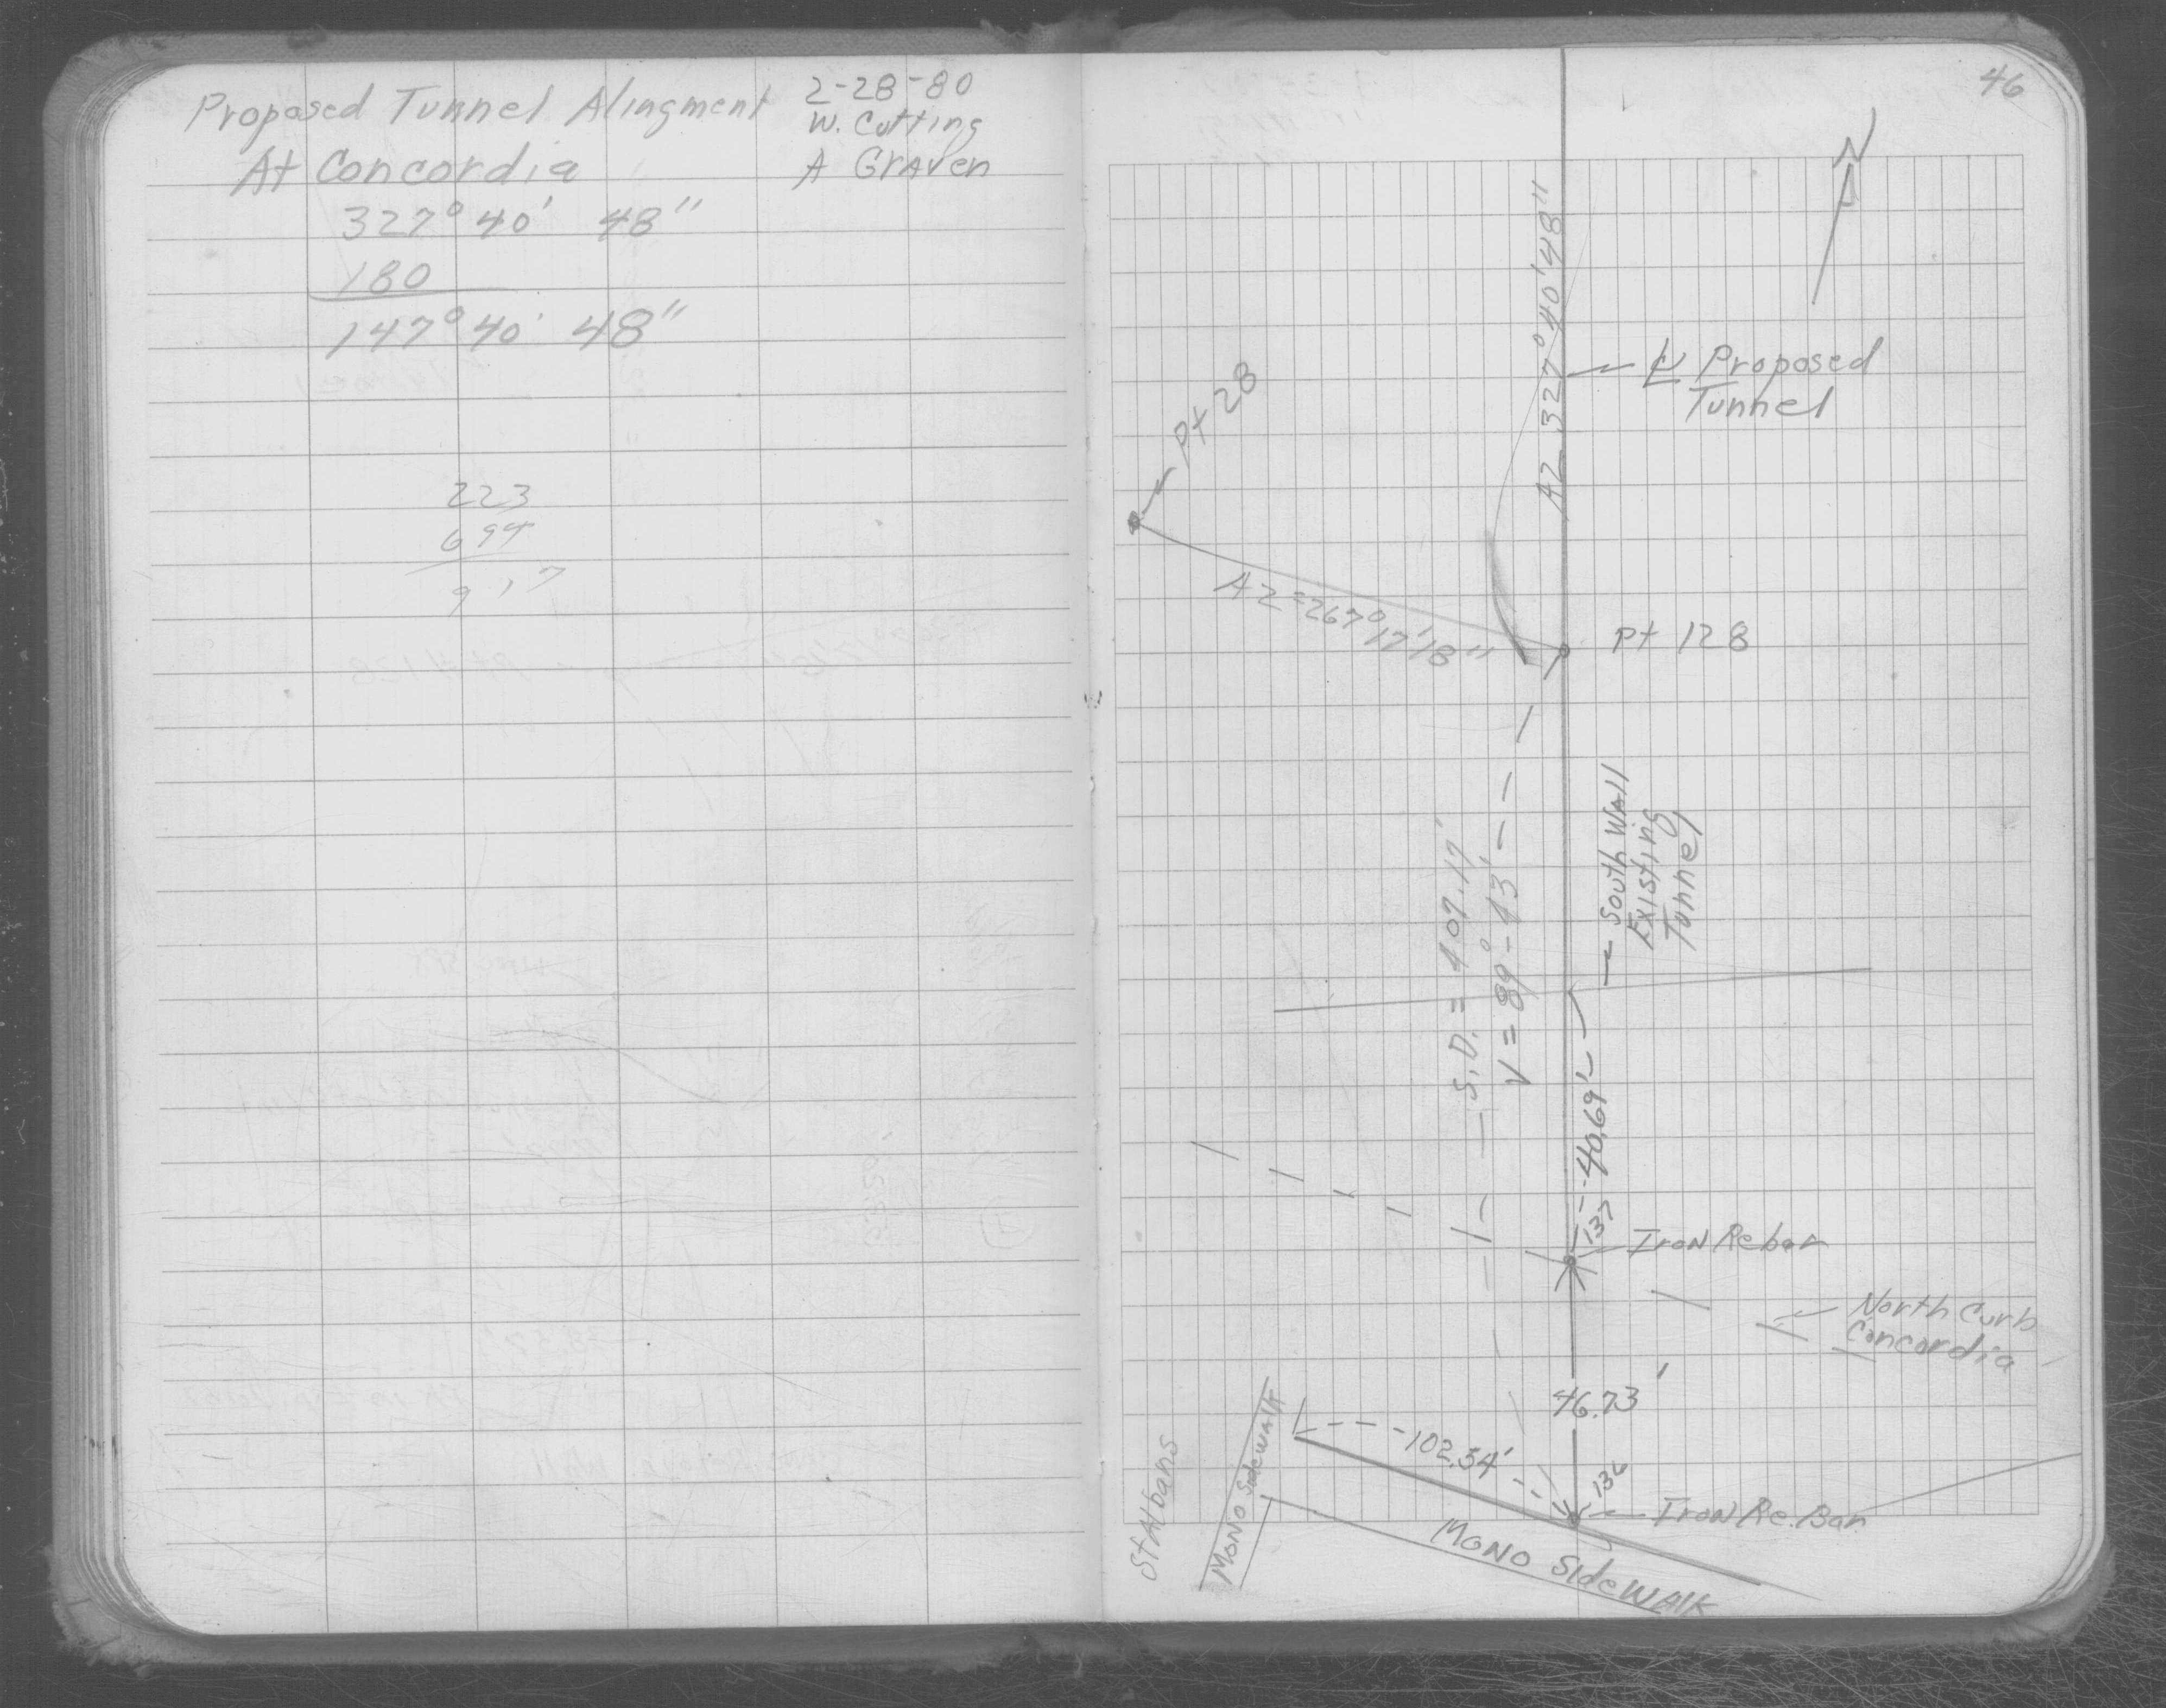 Proposed Tunnel Alingment
At Concordia
2-28-80
W. Cutting
A Graven
327° 40' 48"
180
147° 40' 48"
223
694
917
46
N
AZ 327° 40' 48"
℄ Proposed
Tunnel
Pt 28
AZ = 267° 17' 18"
Pt 128
South Wall
Existing
Tunnel
S.D. = 409.17'
V = 89° - 43'
40.69'
137
Iron Rebar
North Curb
Concordia
46.73'
102.34'
136
Iron Re.Bar
Mono Sidewalk
St Albans
Mono Sidewalk